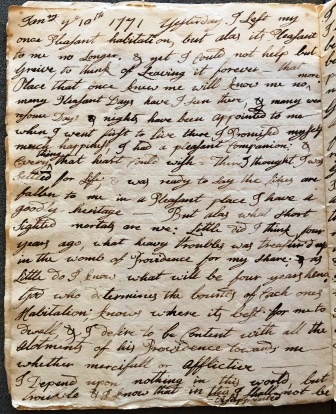 Jan:ry ye 10th 1771 Yesterday I Left my
once Pleasant habitation, but alas its Pleasant
to me no Longer. & yet I could not help but
Greive to think of Leaving it forever that
Place that once knew me will know me no more
many Pleasant Days have I seen there & many wea
risome Days & nights have been appointed to me
when I went first to live there I Promised myself
much happiness I had a pleasant Companion: &
Every thing that heart could wish - Then I thought I was
Settled for Life & was ready to say the Lines are
fallen to me in a Pleasant place I have a
goodly heritage — But alas what short
Sighted mortals are we. Little did I think four
years ago, what heavy troubles was treasur'd up
in the womb of Providence for my share: & as
Little do I know what will be four years hence
God who determines the bounds of Each ones
Habitation knows where its best for me to
dwell & I desire to be Content with all the
Alotments of his Providence towards me
whether mercifull or Afflictive
I Depend upon nothing in this world but
trouble & I know that in this I shall not be